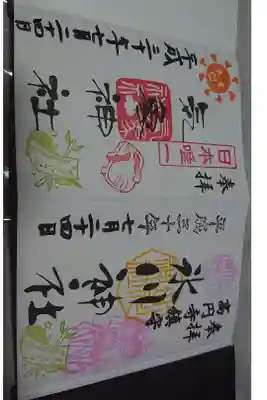 奉拝
日本唯一
気象神社
平成三十年七月二十四日
奉拝
高円寺鎮守
氷川神社
平成三十年七月二十四日